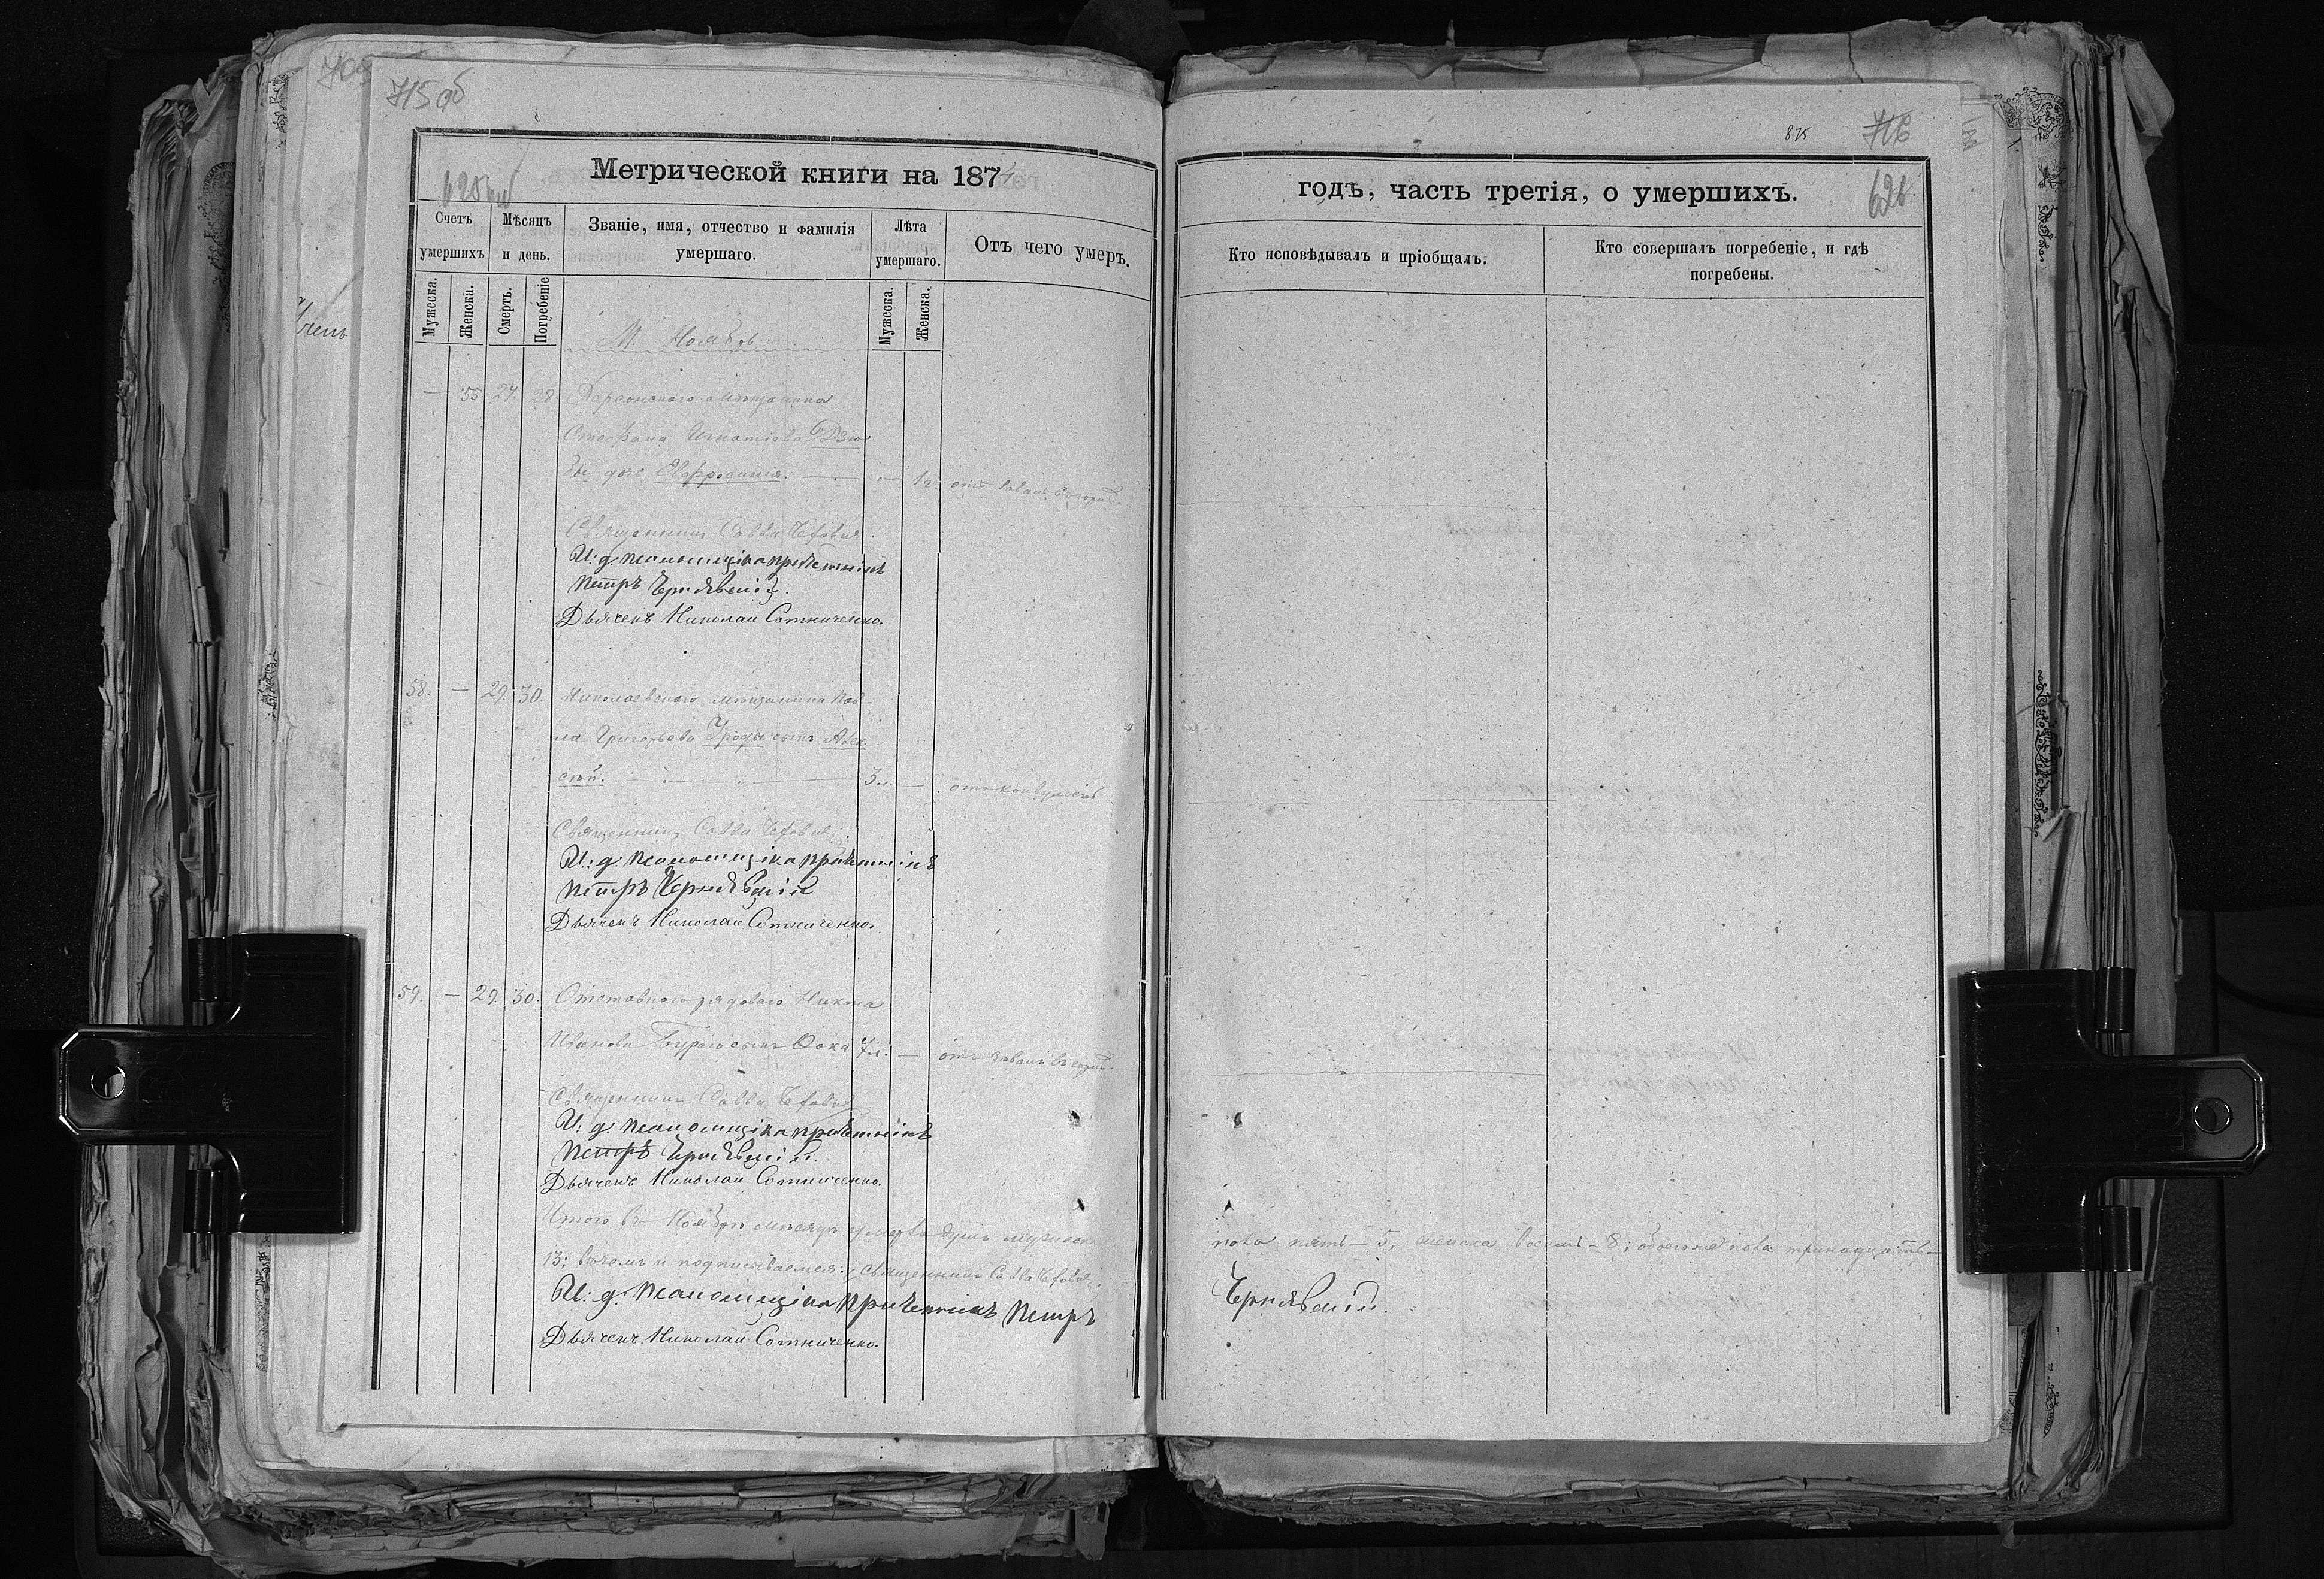 715 об
Метрической книги на 187
Счетъ умершихъ
Мѣсяцъ и день.
Званіе, имя, отчество и фамилія умершаго.
Лѣта умершаго.
Отъ чего умеръ.
Мужеска.
Женска.
Смерть.
Погребеніе
Мужеска.
Женска.
М. Ноябрь.
— 55. 27. 28. Херсонскаго мѣщанина
Стефана Игнатіева Дзю-
бы дочь Евфросинія. — 1 г.
Священникъ Савва
И: д. псаломщика причетникъ
Петръ Чернявскій.
Дьяченъ Николай Сотниченко.
58. — 29. 30. Николаевскаго мѣщанина Пав-
ла Григорьева сынъ Алек-
сѣй. 3 л. — отъ конвульсій
Священникъ Савва
И: д. псаломщика причетникъ
Петръ Чернявскій
Дьяченъ Николай Сотниченко.
59. — 29. 30. Отставного рядоваго Никона
Иванова сынъ Фока 7 л. —
Священникъ Савва
И: д. псаломщика причетникъ
Петръ Чернявскій.
Дьяченъ Николай Сотниченко.
Итого въ Ноябрѣ мѣсяцѣ умерло душъ мужеска
13; въ чемъ и подписываемся: Священникъ Савва
И: д. псаломщика причетникъ Петръ
Дьяченъ Николай Сотниченко.
875
716
626
годъ, часть третія, о умершихъ.
Кто исповѣдывалъ и пріобщалъ.
Кто совершалъ погребеніе, и гдѣ погребены.
пола пять — 5, женска восемь — 8; обоего пола тринадцать —
Чернявскій.